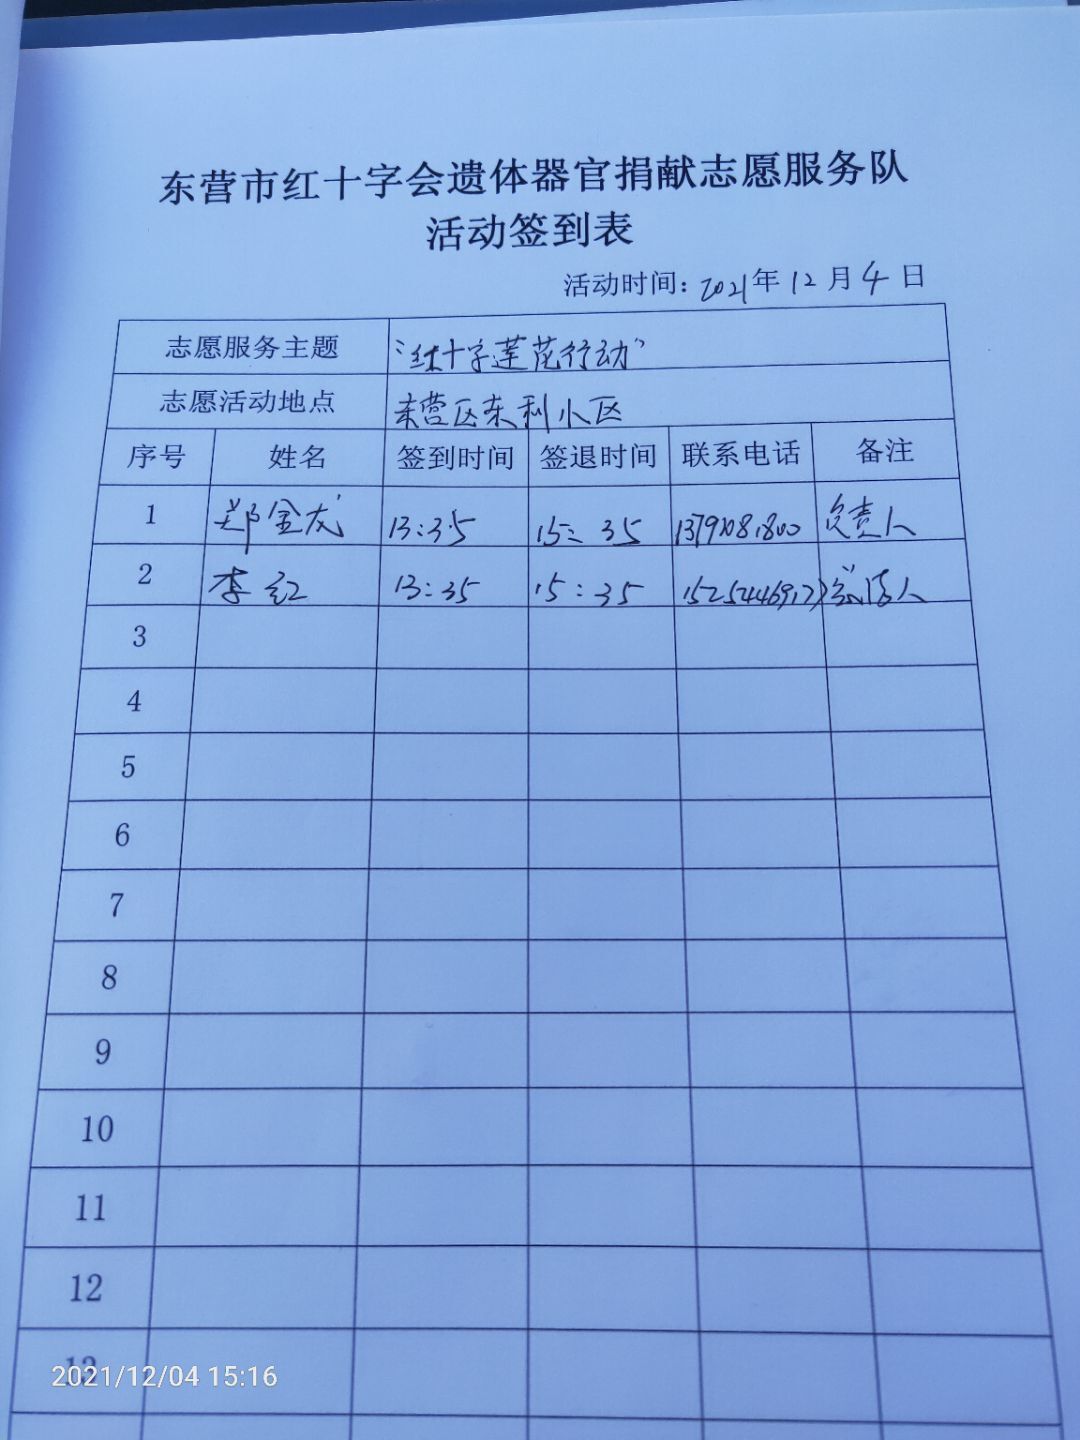 东营市红十字会遗体器官捐献志愿服务队
活动签到表
活动时间：2021年12月4日
志愿服务主题 “红十字莲花行动”
志愿活动地点 东营区东利小区
序号 姓名 签到时间 签退时间 联系电话 备注
1 郑金龙 13:35 15:35 负责人
2 李红 13:35 15:35
3
4
5
6
7
8
9
10
11
12
13
2021/12/04 15:16